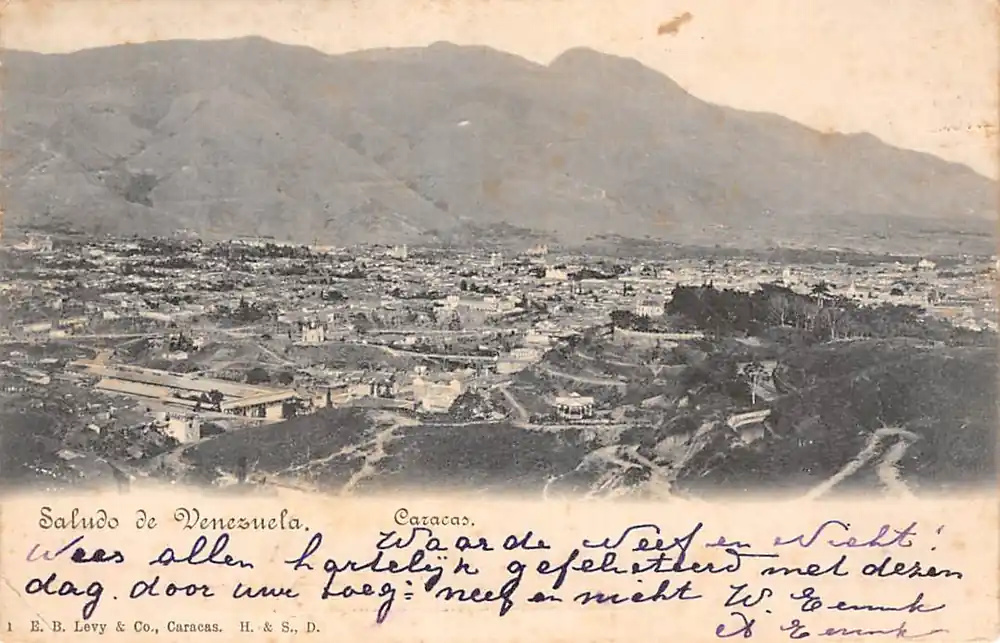 Saludo de Venezuela.
Caracas.
Waarde Neef en Nicht!
Wees allen hartelijk gefeliciteerd met dezen
dag. door uw toeg: neef en nicht W.
1 E. B. Levy & Co., Caracas. H. & S., D.